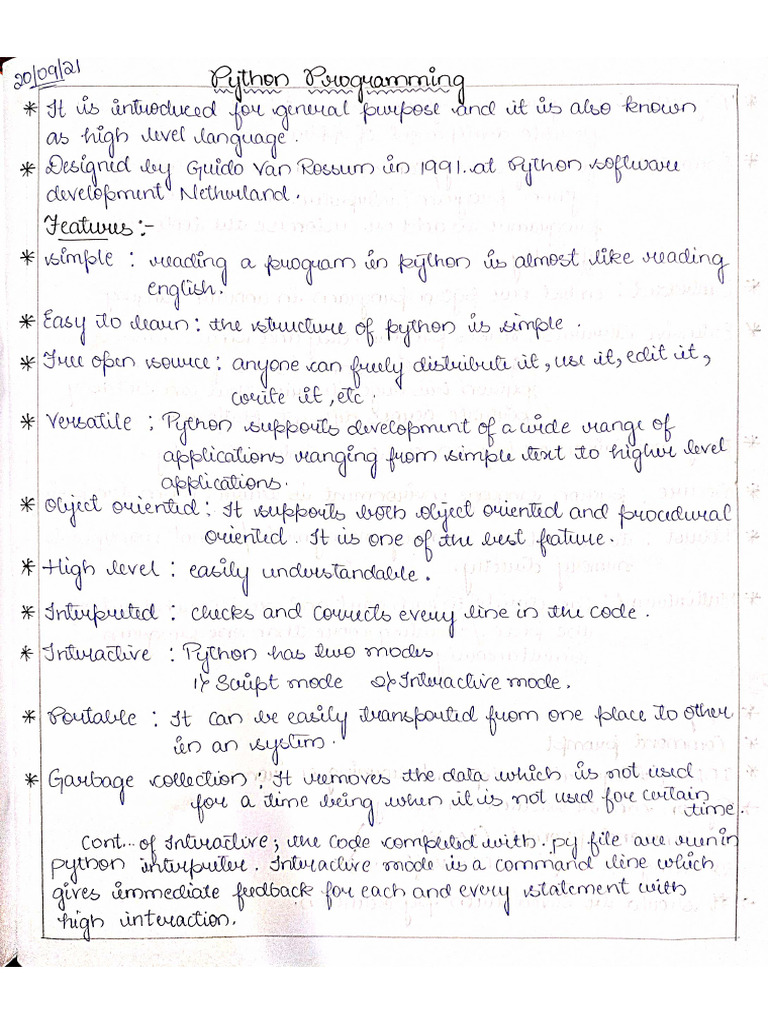 20/09/21
Python Programming
* It is introduced for general purpose and it is also known
as high level language.
* Designed by Guido Van Rossum in 1991. at Python software
development Netherland.
Features :-
* simple : reading a program in python is almost like reading
english.
* Easy to learn : the structure of python is simple .
* Free open source : anyone can freely distribute it, use it, edit it,
write it, etc .
* Versatile ; Python supports development of a wide range of
applications ranging from simple text to higher level
applications.
* Object oriented : It supports both object oriented and procedural
oriented . It is one of the best feature .
* High level : easily understandable .
* Interpreted : checks and corrects every line in the code .
* Interactive : Python has two modes
1) Script mode 2) Interactive mode.
* Portable : It can be easily transported from one place to other
in an system .
* Garbage collection : It removes the data which is not used
for a time being when it is not used for certain
time.
Cont... of Interactive; the code completed with .py file are run in
python interpreter. Interactive mode is a command line which
gives immediate feedback for each and every statement with
high interaction.